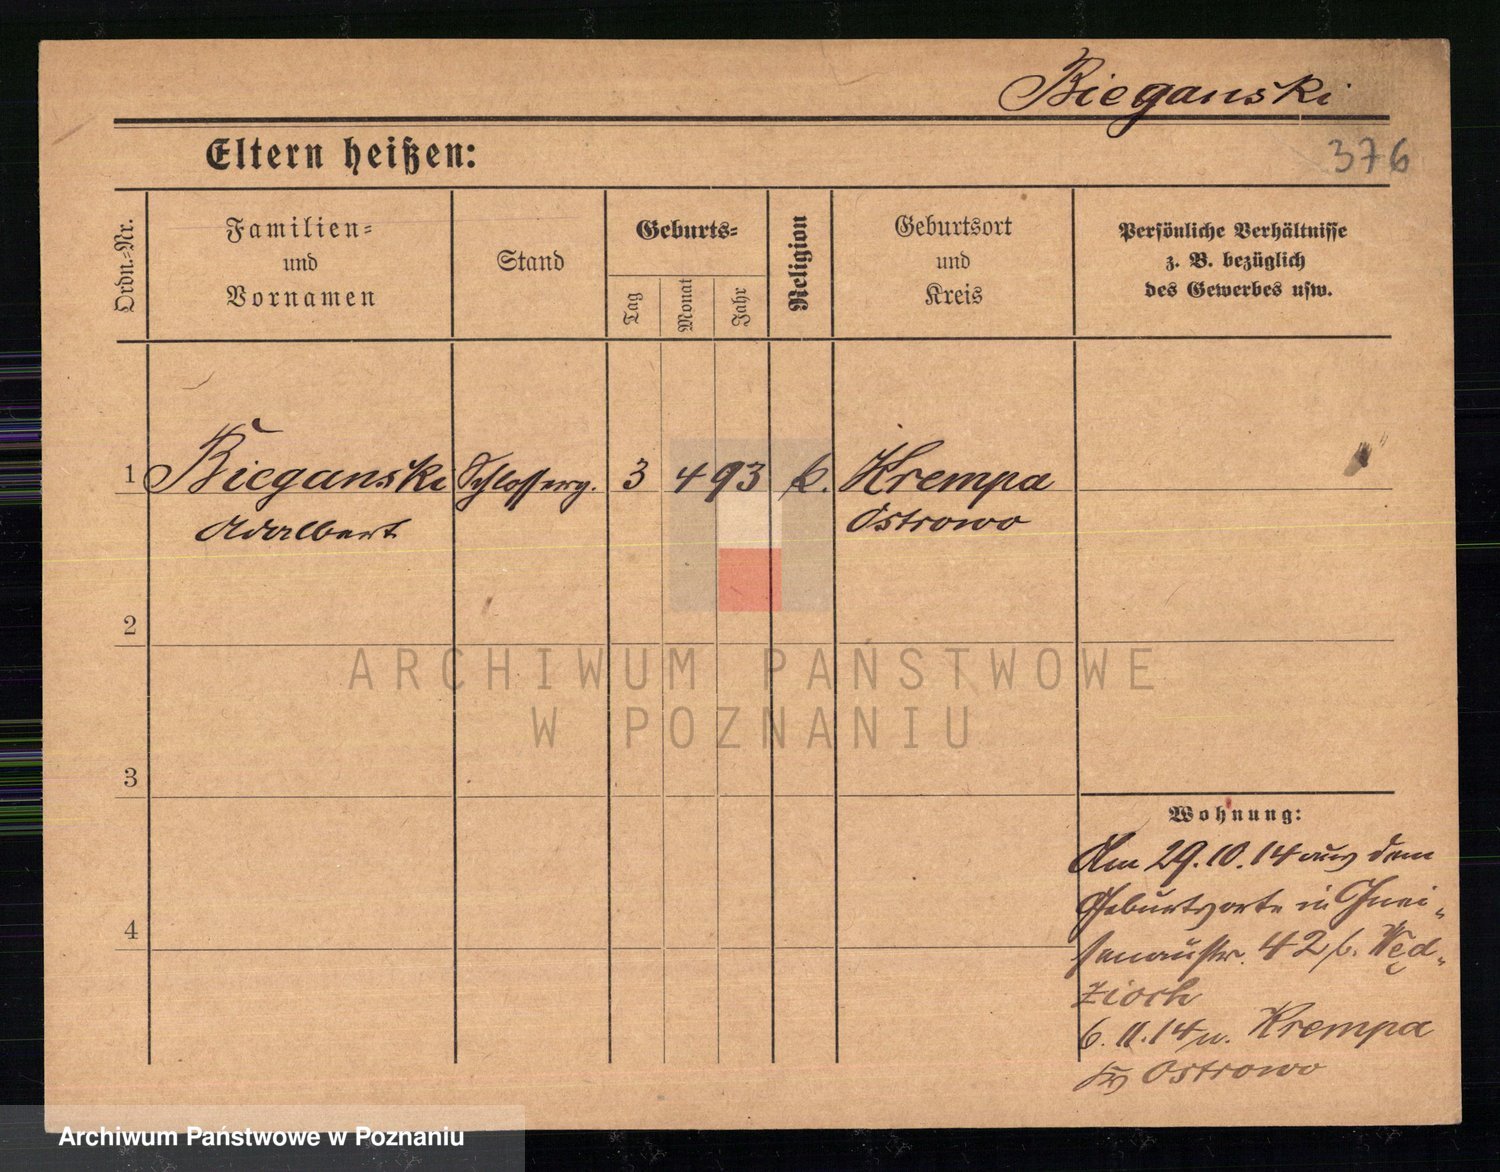 Bieganski
376
Eltern heißen:
Ordn.-Nr.
Familien-
und
Vornamen
Stand
Geburts-
Tag
Monat
Jahr
Religion
Geburtsort
und
Kreis
Persönliche Verhältnisse
z. B. bezüglich
des Gewerbes usw.
1 Bieganski Schlosserg. 3 4 93 k. Krempa
Adalbert Ostrowo
2
ARCHIWUM PAŃSTWOWE
W POZNANIU
3
Wohnung:
Am 29.10.14 aus dem
Geburtsorte in Gnei-
senaustr. 42 b. Węd-
zioch
4
6.11.14 n. Krempa
Ostrowo
Archiwum Państwowe w Poznaniu